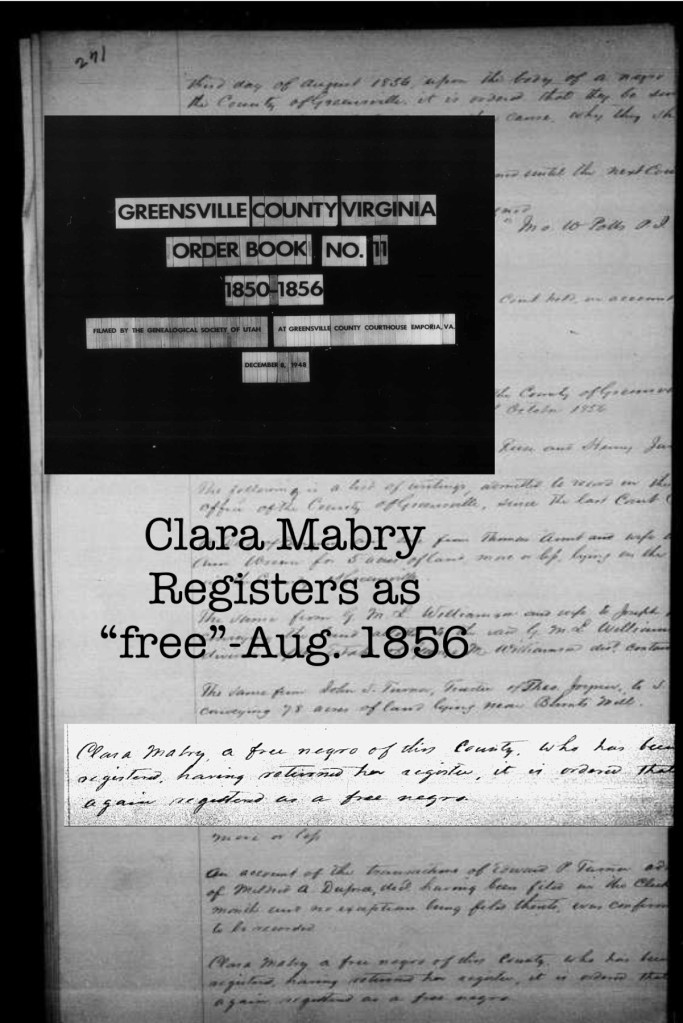 271
third day of August 1856, upon the body of a negro
the County of Greensville. it is ordered that they be
cause, why they
until the next
Jno. W Potts P. J.
Court held, on account
the County of
October 1856
and Henry
GREENSVILLE COUNTY VIRGINIA
ORDER BOOK NO. 11
1850-1856
FILMED BY THE GENEALOGICAL SOCIETY OF UTAH
AT GREENSVILLE COUNTY COURTHOUSE EMPORIA, VA.
DECEMBER 1948
The following is a list of writings, admitted to record in the
office of the County of Greensville, since the last Court
from Thomas and wife
for 5 acres of land more or less, lying on the
Clara Mabry
Registers as
“free”-Aug. 1856
The same from G. M. L. Williamson and wife to Joseph
G M. L. William
Williamson
The same from John T. Turner, Trustee of Theo. to
conveying 78 acres of land lying near Mill.
Clara Mabry, a free negro of this County, who has been
registered, having returned her register, it is ordered that
again registered as a free negro.
more or less
An account of the transactions of Edward P. Turner
of Mildred A. having been filed in the
month and no exception being filed thereto, was
to be recorded
Clara Mabry a free negro of this County, who has been
registered, having returned her register, it is ordered that
again registered as a free negro.